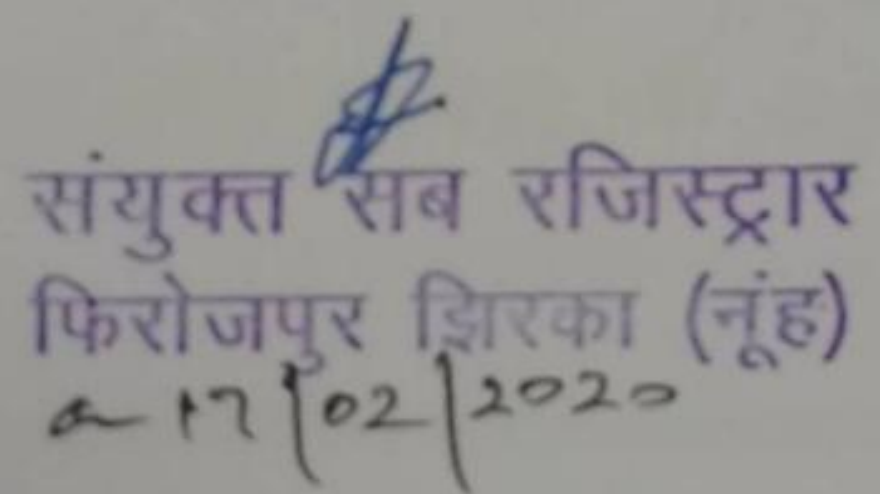 संयुक्त सब रजिस्ट्रार
फिरोजपुर झिरका (नूंह)
17/02/2020